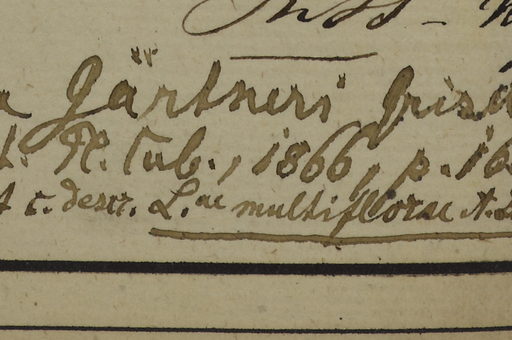 Gärtneri Gris
Pl. Cub., 1866, p. 16
c. descr. L.ae multiflorae A.